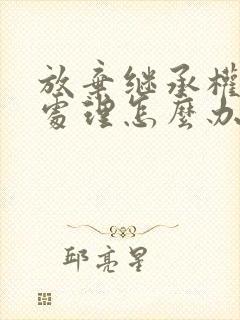 放棄继承權
處理怎麼办
邱亮星